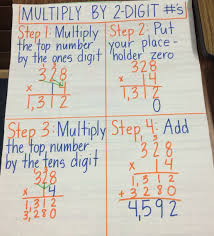 MULTIPLY BY 2-DIGIT #'s
Step 1: Multiply
the top number
by the ones digit
328
x 14
1,312
Step 2: Put
your place-
holder zero
328
x 14
1,312
0
Step 3: Multiply
the top number
by the tens digit
328
x 14
1,312
3,280
Step 4: Add
328
x 14
1,312
+ 3280
4,592